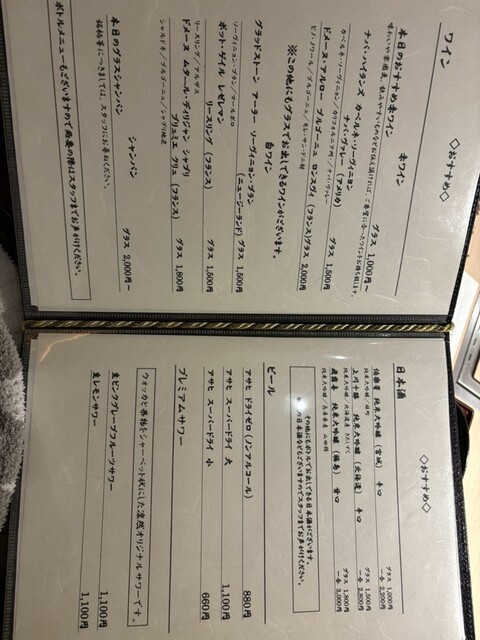 ◇おすすめ◇
ワイン
赤ワイン
本日のおすすめ赤ワイン
グラス 1,000円～
ナパ・ハイランズ カベルネ・ソーヴィニヨン
ナパ・ヴァレー (アメリカ)
グラス 1,500円
カベルネ・ソーヴィニヨン/カリフォルニア州/ナパ・ヴァレー
ドメーヌ・アルロー ブルゴーニュ ロンスヴィ (フランス)グラス 2,000円
※この他にもグラスでお出しできるワインがございます。
白ワイン
グラッドストーン アーラー ソーヴィニヨン・ブラン
(ニュージーランド) グラス 1,500円
ソーヴィニヨン・ブラン/マールボロ
ボット・ゲイル レゼレマン リースリング (フランス) グラス 1,500円
リースリング/アルザス
ドメーヌ ムタール・ディリジャン シャブリ
プリュミエ クリュ (フランス) グラス 1,800円
シャルドネ/ブルゴーニュ/シャブリ地区
シャンパン
本日のグラスシャンパン グラス 2,000円～
銘柄等につきましては、スタッフにお尋ねください。
ボトルメニューもございますので必要の際はスタッフまでお声がけください。
◇おすすめ◇
日本酒
伯楽星 純米大吟醸 (宮城) 辛口
グラス 1,000円
一合 2,200円
上川大雪 純米大吟醸 (北海道) 辛口
一合 2,800円
純米大吟醸 (福島) 甘口
グラス 1,800円
一合 3,000円
その他にもボトルでお出しできる日本酒がございます。
ビール
アサヒ ドライゼロ (ノンアルコール) 880円
アサヒ スーパードライ 大 1,100円
アサヒ スーパードライ 小 660円
プレミアムサワー
ウォッカと果物をシャーベット状にした凛然オリジナルサワーです。
生ピンクグレープフルーツサワー 1,100円
生レモンサワー 1,100円